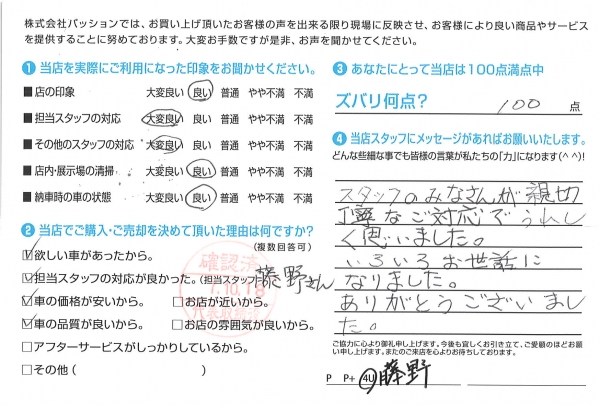 株式会社パッションでは、お買い上げ頂いたお客様の声を出来る限り現場に反映させ、お客様により良い商品やサービス
を提供することに努めております。大変お手数ですが是非、お声を聞かせてください。
❶ 当店を実際にご利用になった印象をお聞かせください。
■店の印象 大変良い 良い 普通 やや不満 不満
■担当スタッフの対応 大変良い 良い 普通 やや不満 不満
■その他のスタッフの対応 大変良い 良い 普通 やや不満 不満
■店内・展示場の清掃 大変良い 良い 普通 やや不満 不満
■納車時の車の状態 大変良い 良い 普通 やや不満 不満
❷ 当店でご購入・ご売却を決めて頂いた理由は何ですか?
(複数回答可)
☑欲しい車があったから。
☑担当スタッフの対応が良かった。(担当スタッフ 藤野さん
☑車の価格が安いから。 □お店が近いから。
☑車の品質が良いから。 □お店の雰囲気が良いから。
□アフターサービスがしっかりしているから。
□その他 ( )
確認済
7.10.18
❸ あなたにとって当店は100点満点中
ズバリ何点? 100 点
❹ 当店スタッフにメッセージがあればお願いいたします。
どんな些細な事でも皆様の言葉が私たちの「力」になります(^^)!
スタッフのみなさんが親切
丁寧なご対応でうれし
く思いました。
いろいろお世話に
なりました。
ありがとうございまし
た。
ご協力に心より御礼申し上げます。今後も宜しくお引き立て、ご愛顧のほどお願
い申し上げます。またのご来店を心よりお待ちしております。
P P+ 4U 藤野